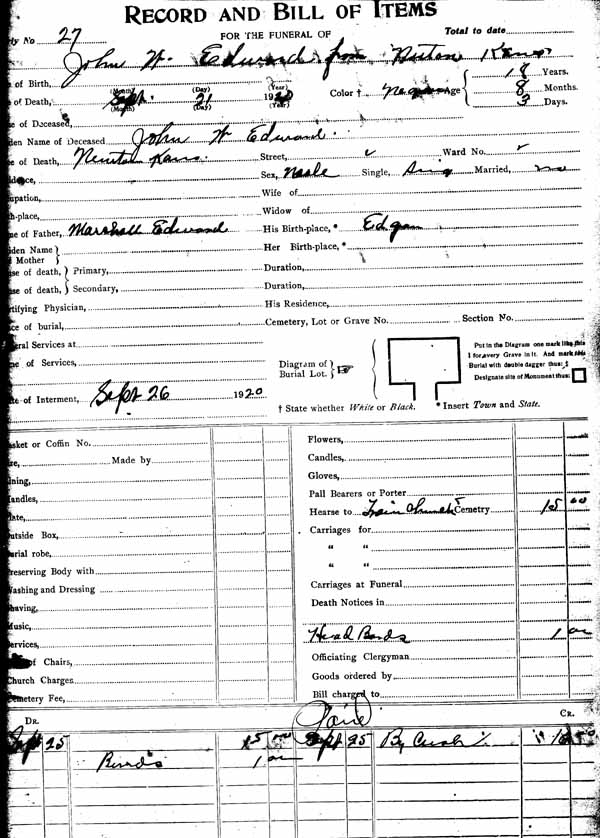 RECORD AND BILL OF ITEMS
FOR THE FUNERAL OF
Total to date
ly No 27
John W. Edward from Kans
e of Birth, (Month) (Day) (Year)
18 Years.
e of Death, Sept. 21 1920 Color † Age 8 Months.
(Month) (Day) (Year)
3 Days.
e of Deceased,
den Name of Deceased John W Edward.
e of Death, Kans. Street, Ward No.
dence, Sex, Male Single, Sing Married, no
upation, Wife of
h-place, Widow of
e of Father, Marshall Edward His Birth-place, *
iden Name } Her Birth-place, *
d Mother }
se of death, } Primary, Duration,
se of death, } Secondary, Duration,
rtifying Physician, His Residence,
ce of burial, Cemetery, Lot or Grave No. Section No.
eral Services at
e of Services,
Diagram of Burial Lot. ☞
Put in the Diagram one mark like this
I for every Grave in it. And mark this
Burial with double dagger thus: ‡
Designate site of Monument thus: □
te of Interment, Sept 26 1920
† State whether White or Black. * Insert Town and State.
asket or Coffin No. Flowers,
ze, Made by Candles,
ning, Gloves,
andles, Pall Bearers or Porter
late, Hearse to Train Church & Cemetry 15 00
utside Box, Carriages for
urial robe, " "
reserving Body with " "
Washing and Dressing Carriages at Funeral
having, Death Notices in
Music,
ervices, Head Bords 1 00
of Chairs, Officiating Clergyman
Church Charges Goods ordered by
emetery Fee, Bill charged to
DR. Paid CR.
Sept 25 15 00 Sept 25 By Cash 16 00
1 00